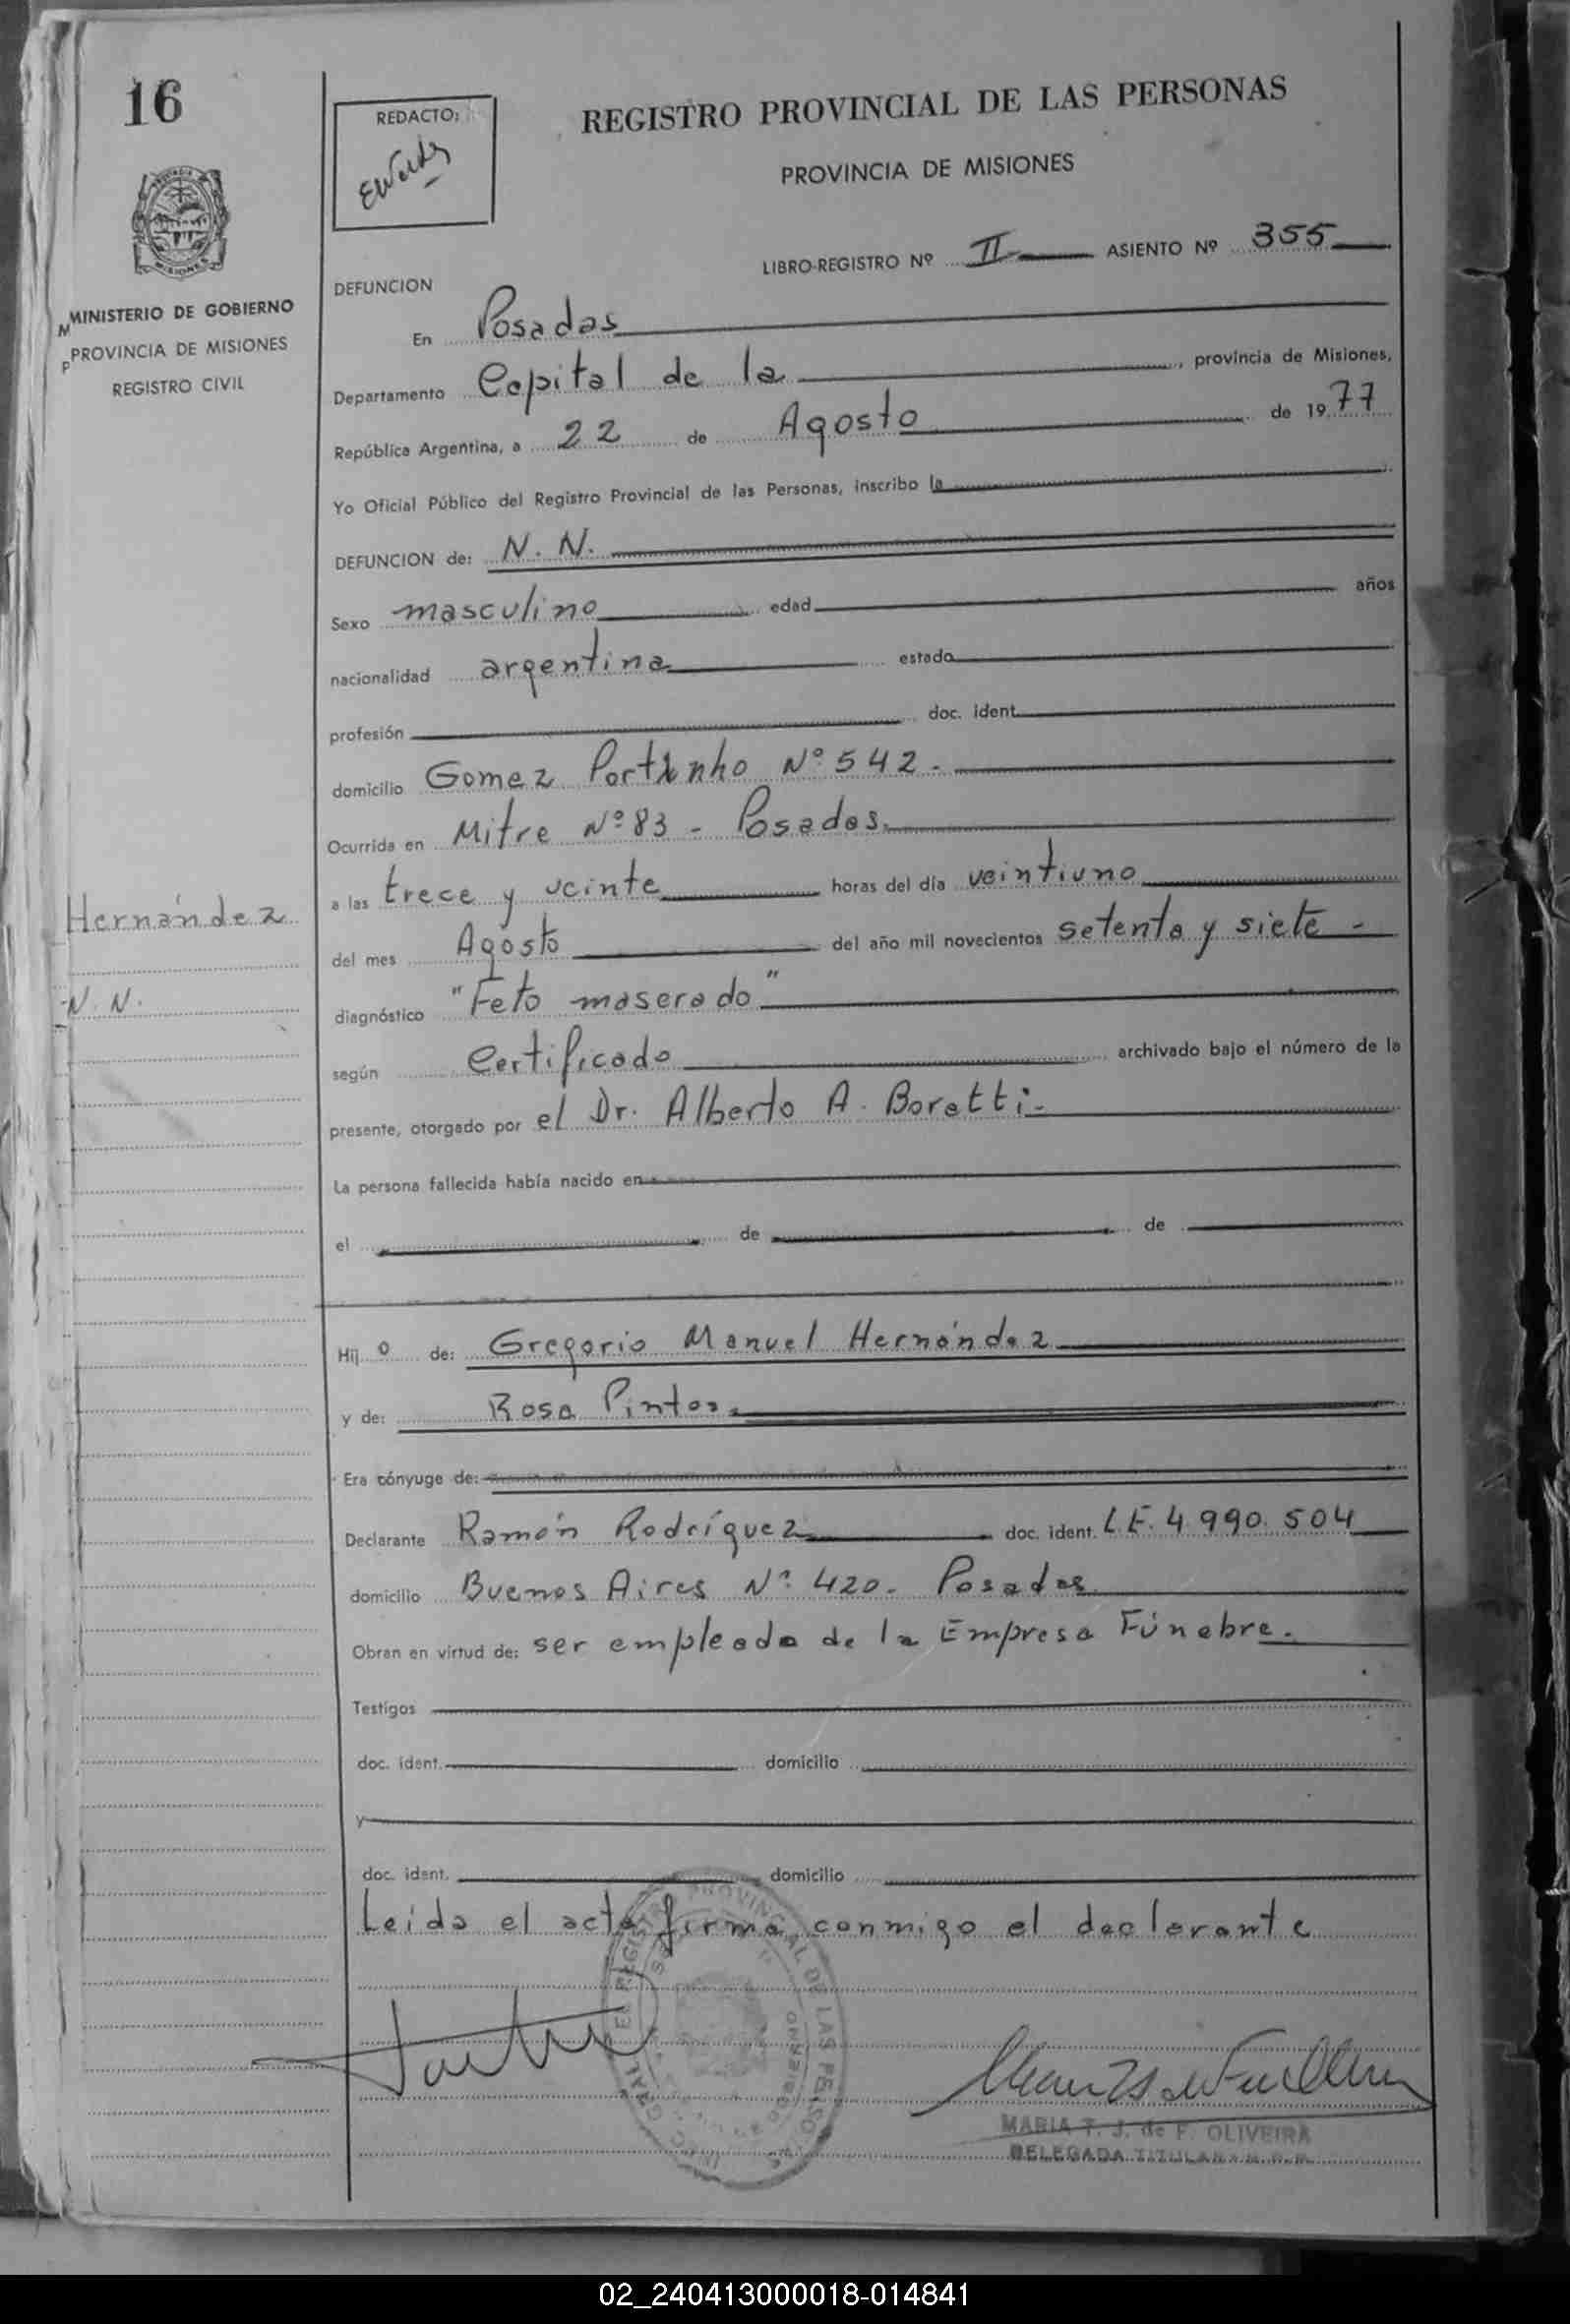 16
REDACTO:
REGISTRO PROVINCIAL DE LAS PERSONAS
PROVINCIA DE MISIONES
LIBRO-REGISTRO Nº II ASIENTO Nº 355
MISIONES
MINISTERIO DE GOBIERNO
PROVINCIA DE MISIONES
REGISTRO CIVIL
DEFUNCION
En Posadas
Departamento Capital de la, provincia de Misiones,
República Argentina, a 22 de Agosto de 1977
Yo Oficial Público del Registro Provincial de las Personas, inscribo la
DEFUNCION de: N. N.
Sexo masculino edad años
nacionalidad argentina estado
profesión doc. ident.
domicilio Gomez Portinho Nº 542.
Ocurrida en Mitre Nº 83 - Posadas.
a las trece y veinte horas del día veintiuno
Hernández
del mes Agosto del año mil novecientos setenta y siete -
N. N.
diagnóstico "Feto maserado"
según Certificado archivado bajo el número de la
presente, otorgado por el Dr. Alberto A. Boretti.
La persona fallecida había nacido en
el de de
Hij o de: Gregorio Manuel Hernández
y de: Rosa Pintos.
Era cónyuge de:
Declarante Ramón Rodríguez doc. ident. L.E. 4.990.504
domicilio Buenos Aires Nº 420. Posadas
Obran en virtud de: ser empleado de la Empresa Fúnebre.
Testigos
doc. ident. domicilio
y
doc. ident. domicilio
Leída el acta firma conmigo el declarante
REGISTRO PROVINCIAL DE LAS PERSONAS
MARIA T. J. de F. OLIVEIRA
DELEGADA TITULAR
02_240413000018-014841